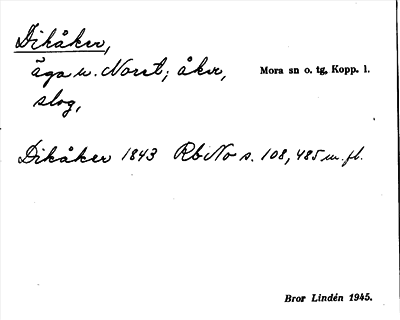 Dikåker,
äga u. Noret; åker, Mora sn o. tg, Kopp. l.
slog,
Dikåker 1843 RbNo s. 108, 485 m. fl.
Bror Lindén 1945.